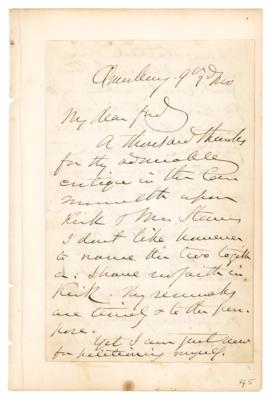 Amesbury 9th 3d mo
My dear frd,
A thousand thanks
for thy admirable
critique in the Com
monwealth upon
Kirk & Mrs. Stowe
I don't like however
to name the two togeth
er. I have no faith in
Kirk. Thy remarks
are timely & to the pur-
pose.
Yet I am just now
for petitioning myself.
45